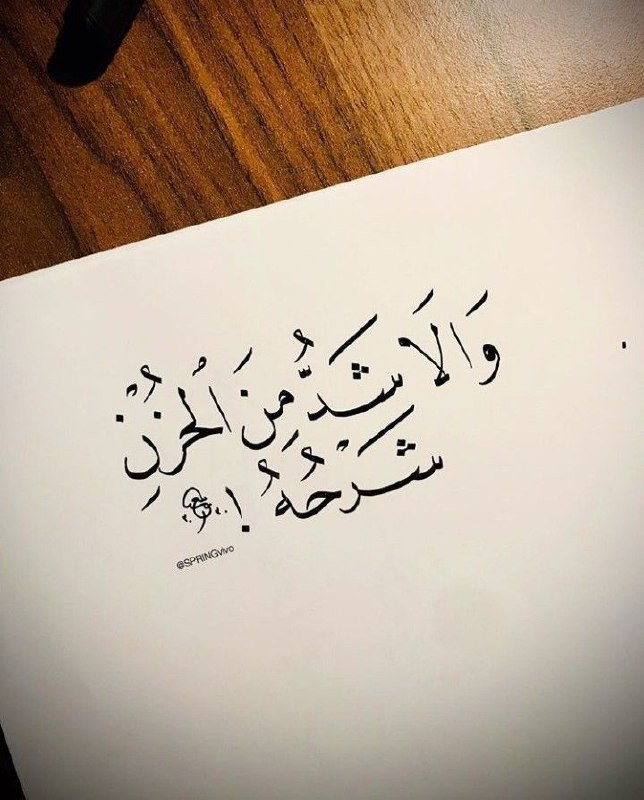 وَالاَشَدُّ مِنَ الحُزْنِ
شَرْحُهُ !
@SPRINGvivo